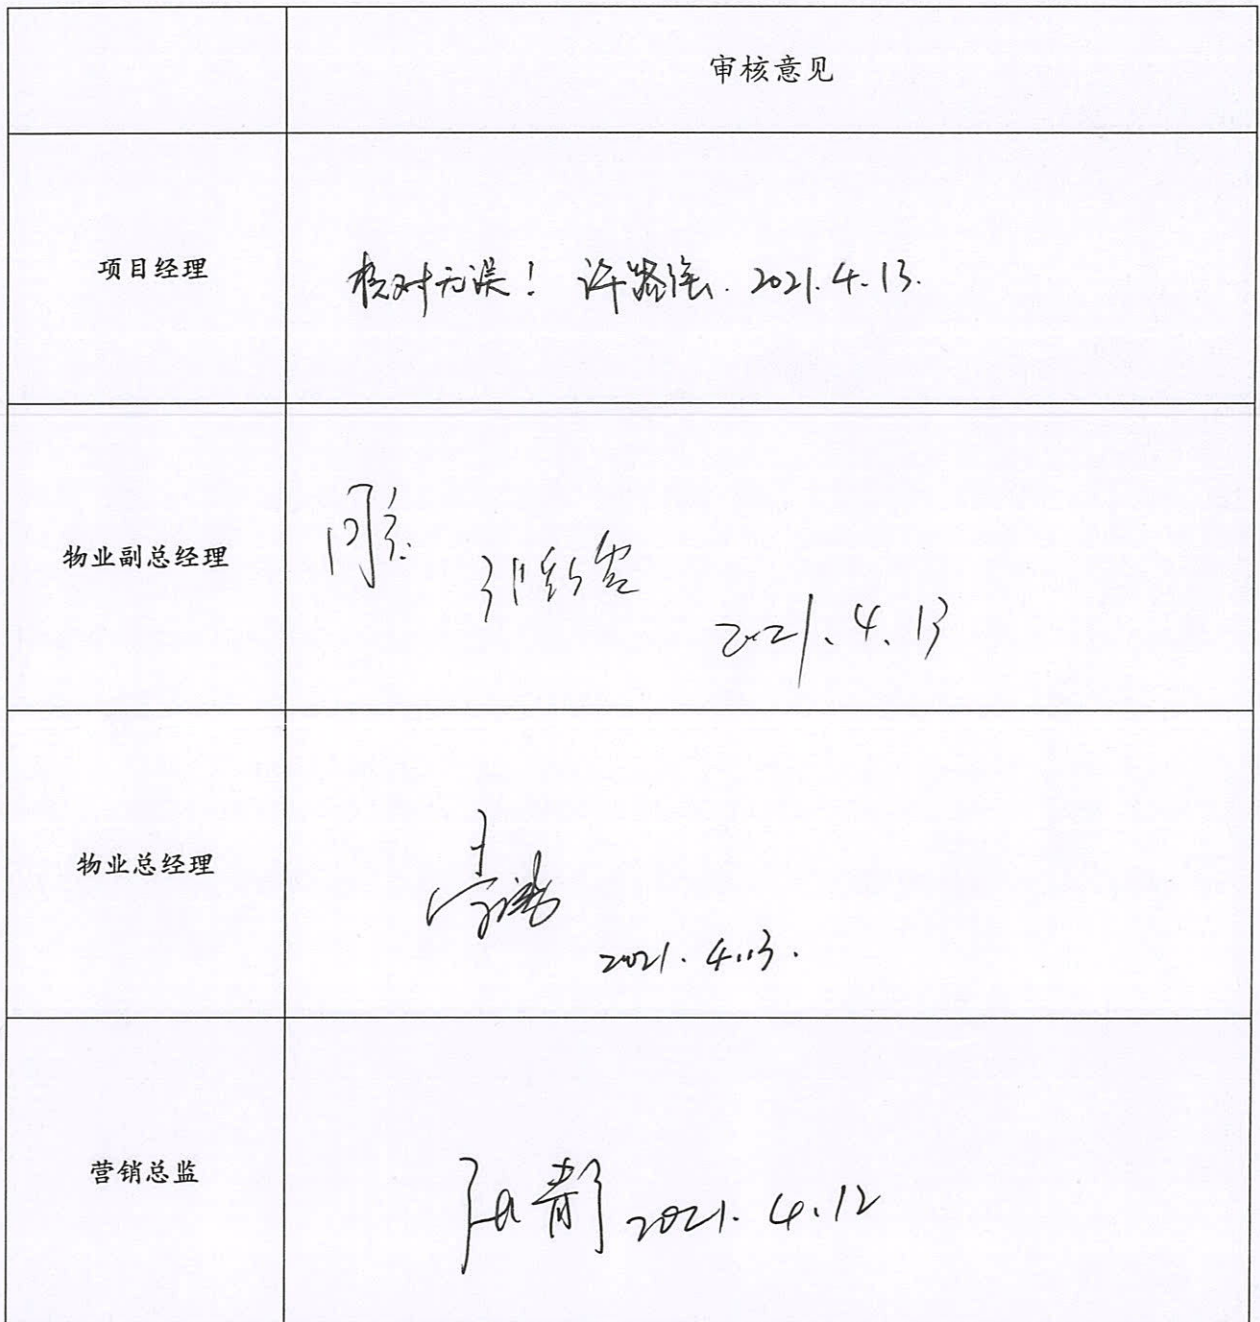 审核意见
项目经理
核对无误！ 许 2021.4.13.
物业副总经理
同意.
2021.4.13
物业总经理
2021.4.13.
营销总监
2021.4.12